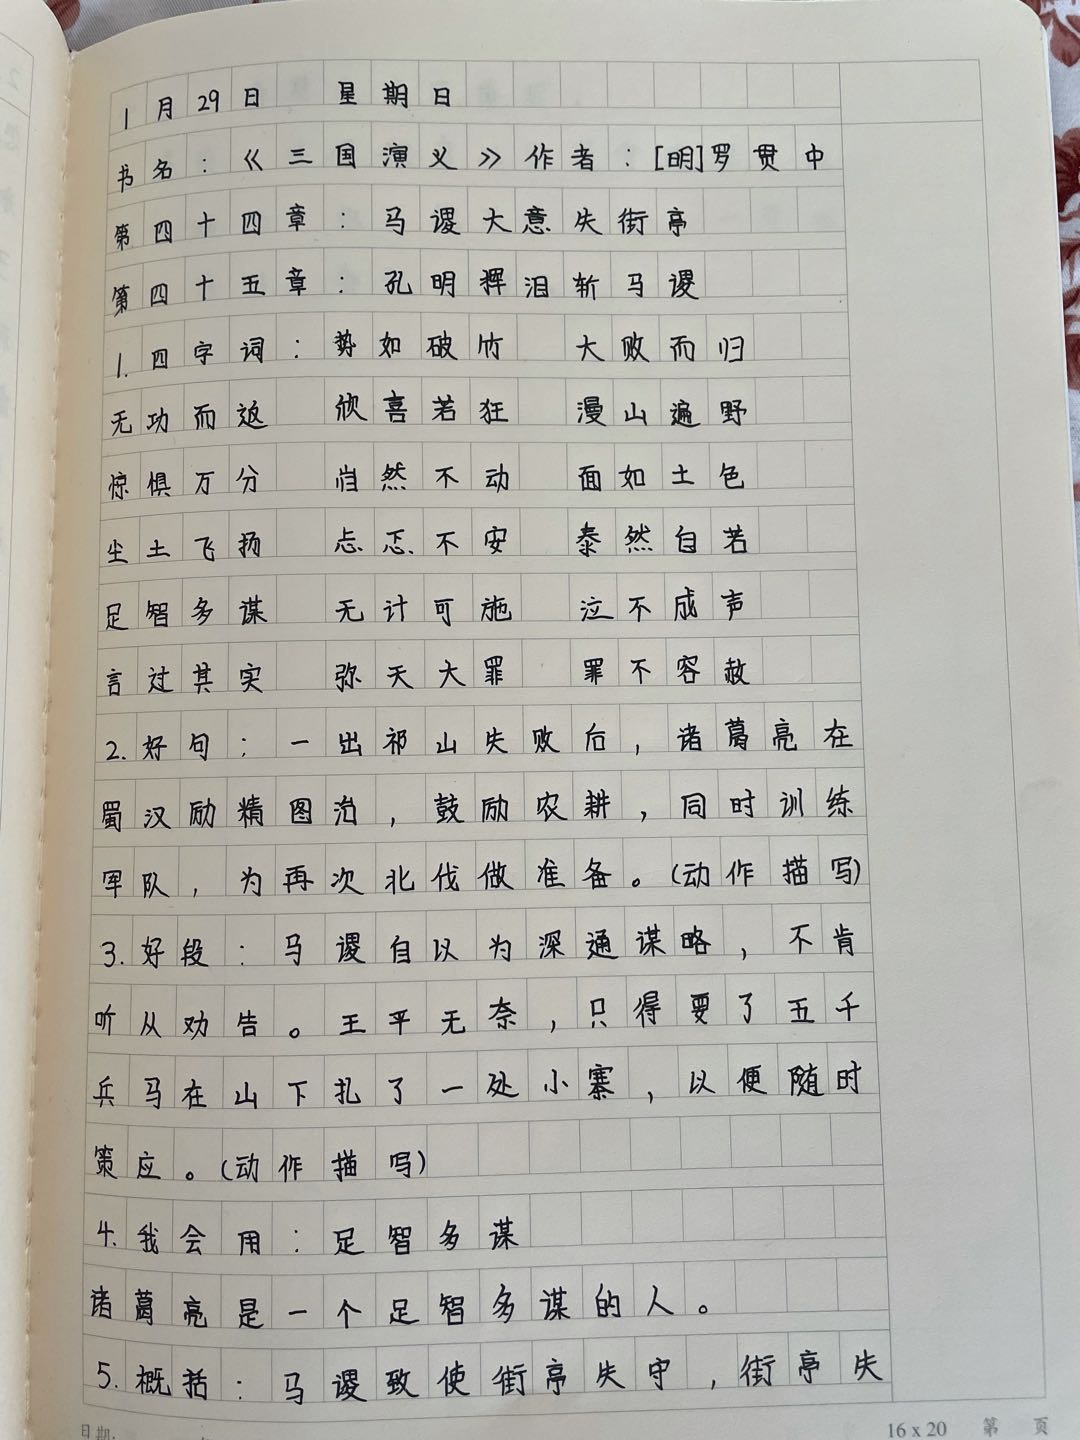 1月29日 星期日
书名：《三国演义》作者：[明]罗贯中
第四十四章：马谡大意失街亭
第四十五章：孔明挥泪斩马谡
1.四字词：势如破竹 大败而归
无功而返 欣喜若狂 漫山遍野
惊惧万分 岿然不动 面如土色
尘土飞扬 忐忑不安 泰然自若
足智多谋 无计可施 泣不成声
言过其实 弥天大罪 罪不容赦
2.好句：一出祁山失败后，诸葛亮在
蜀汉励精图治，鼓励农耕，同时训练
军队，为再次北伐做准备。(动作描写)
3.好段：马谡自以为深通谋略，不肯
听从劝告。王平无奈，只得要了五千
兵马在山下扎了一处小寨，以便随时
策应。(动作描写)
4.我会用：足智多谋
诸葛亮是一个足智多谋的人。
5.概括：马谡致使街亭失守，街亭失
日期:
16 x 20 第 页